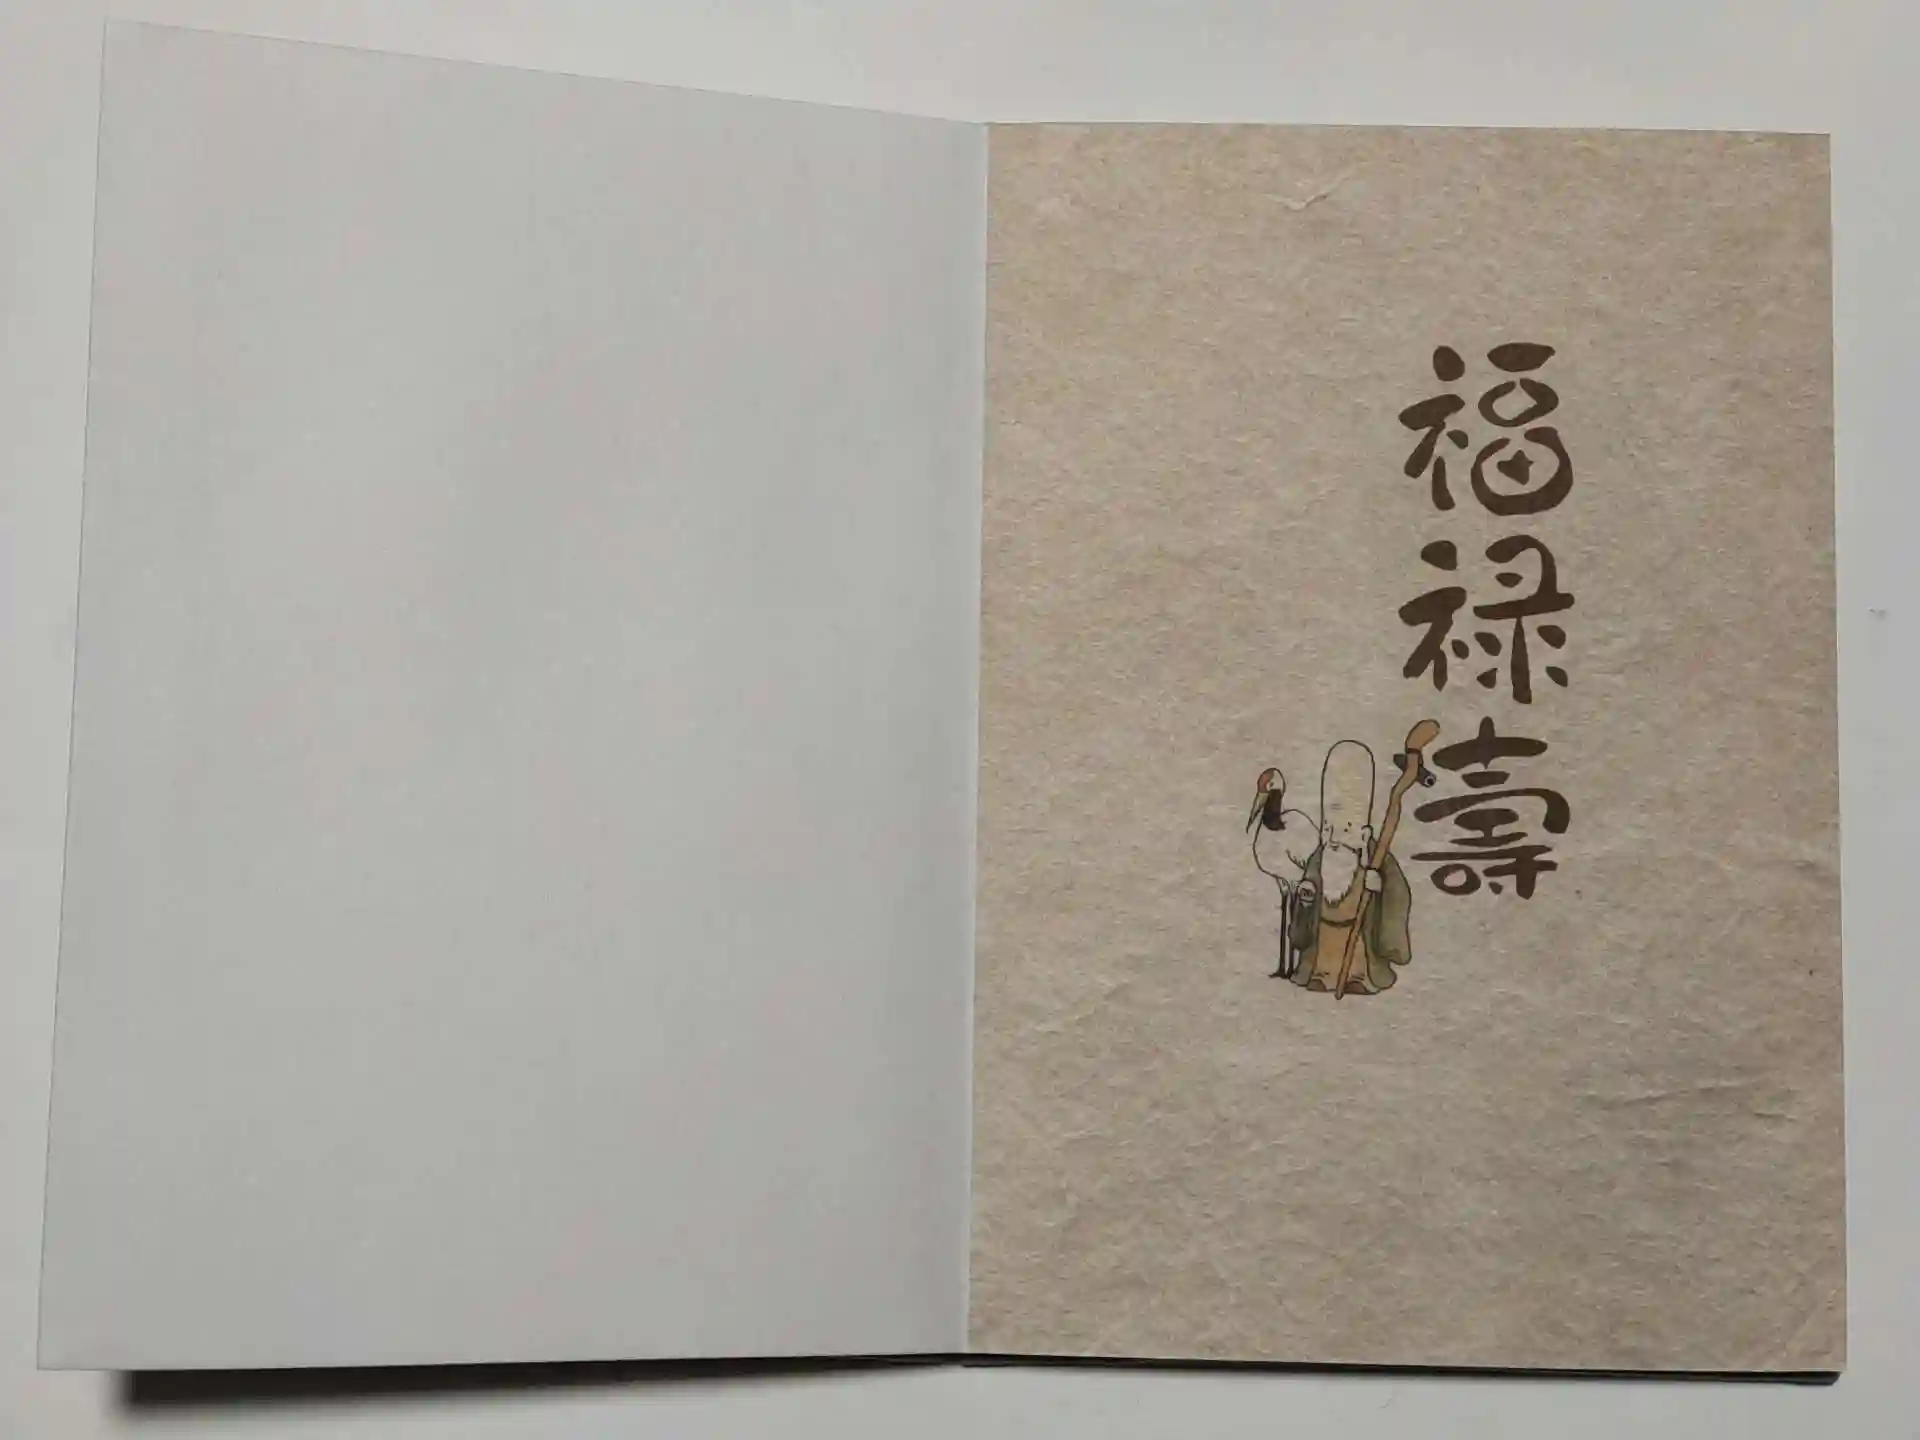 福禄壽